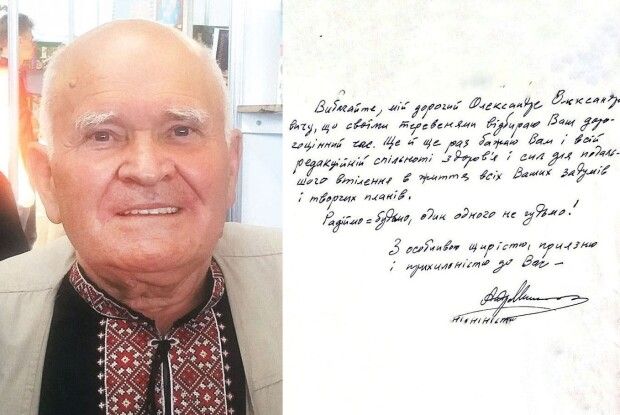 Вибачайте, мій дорогий Олександре Олександро-
вичу, що своїми теревенями відбираю Ваш доро-
гоцінний час. Ще й ще раз бажаю Вам і всій
редакційній спільноті здоров'я і сил для подаль-
шого втілення в життя всіх Ваших задумів
і творчих планів.
Радіймо=будьмо, один одного не гудьмо!
З особливою щирістю, приязню
і прихильністю до Вас –